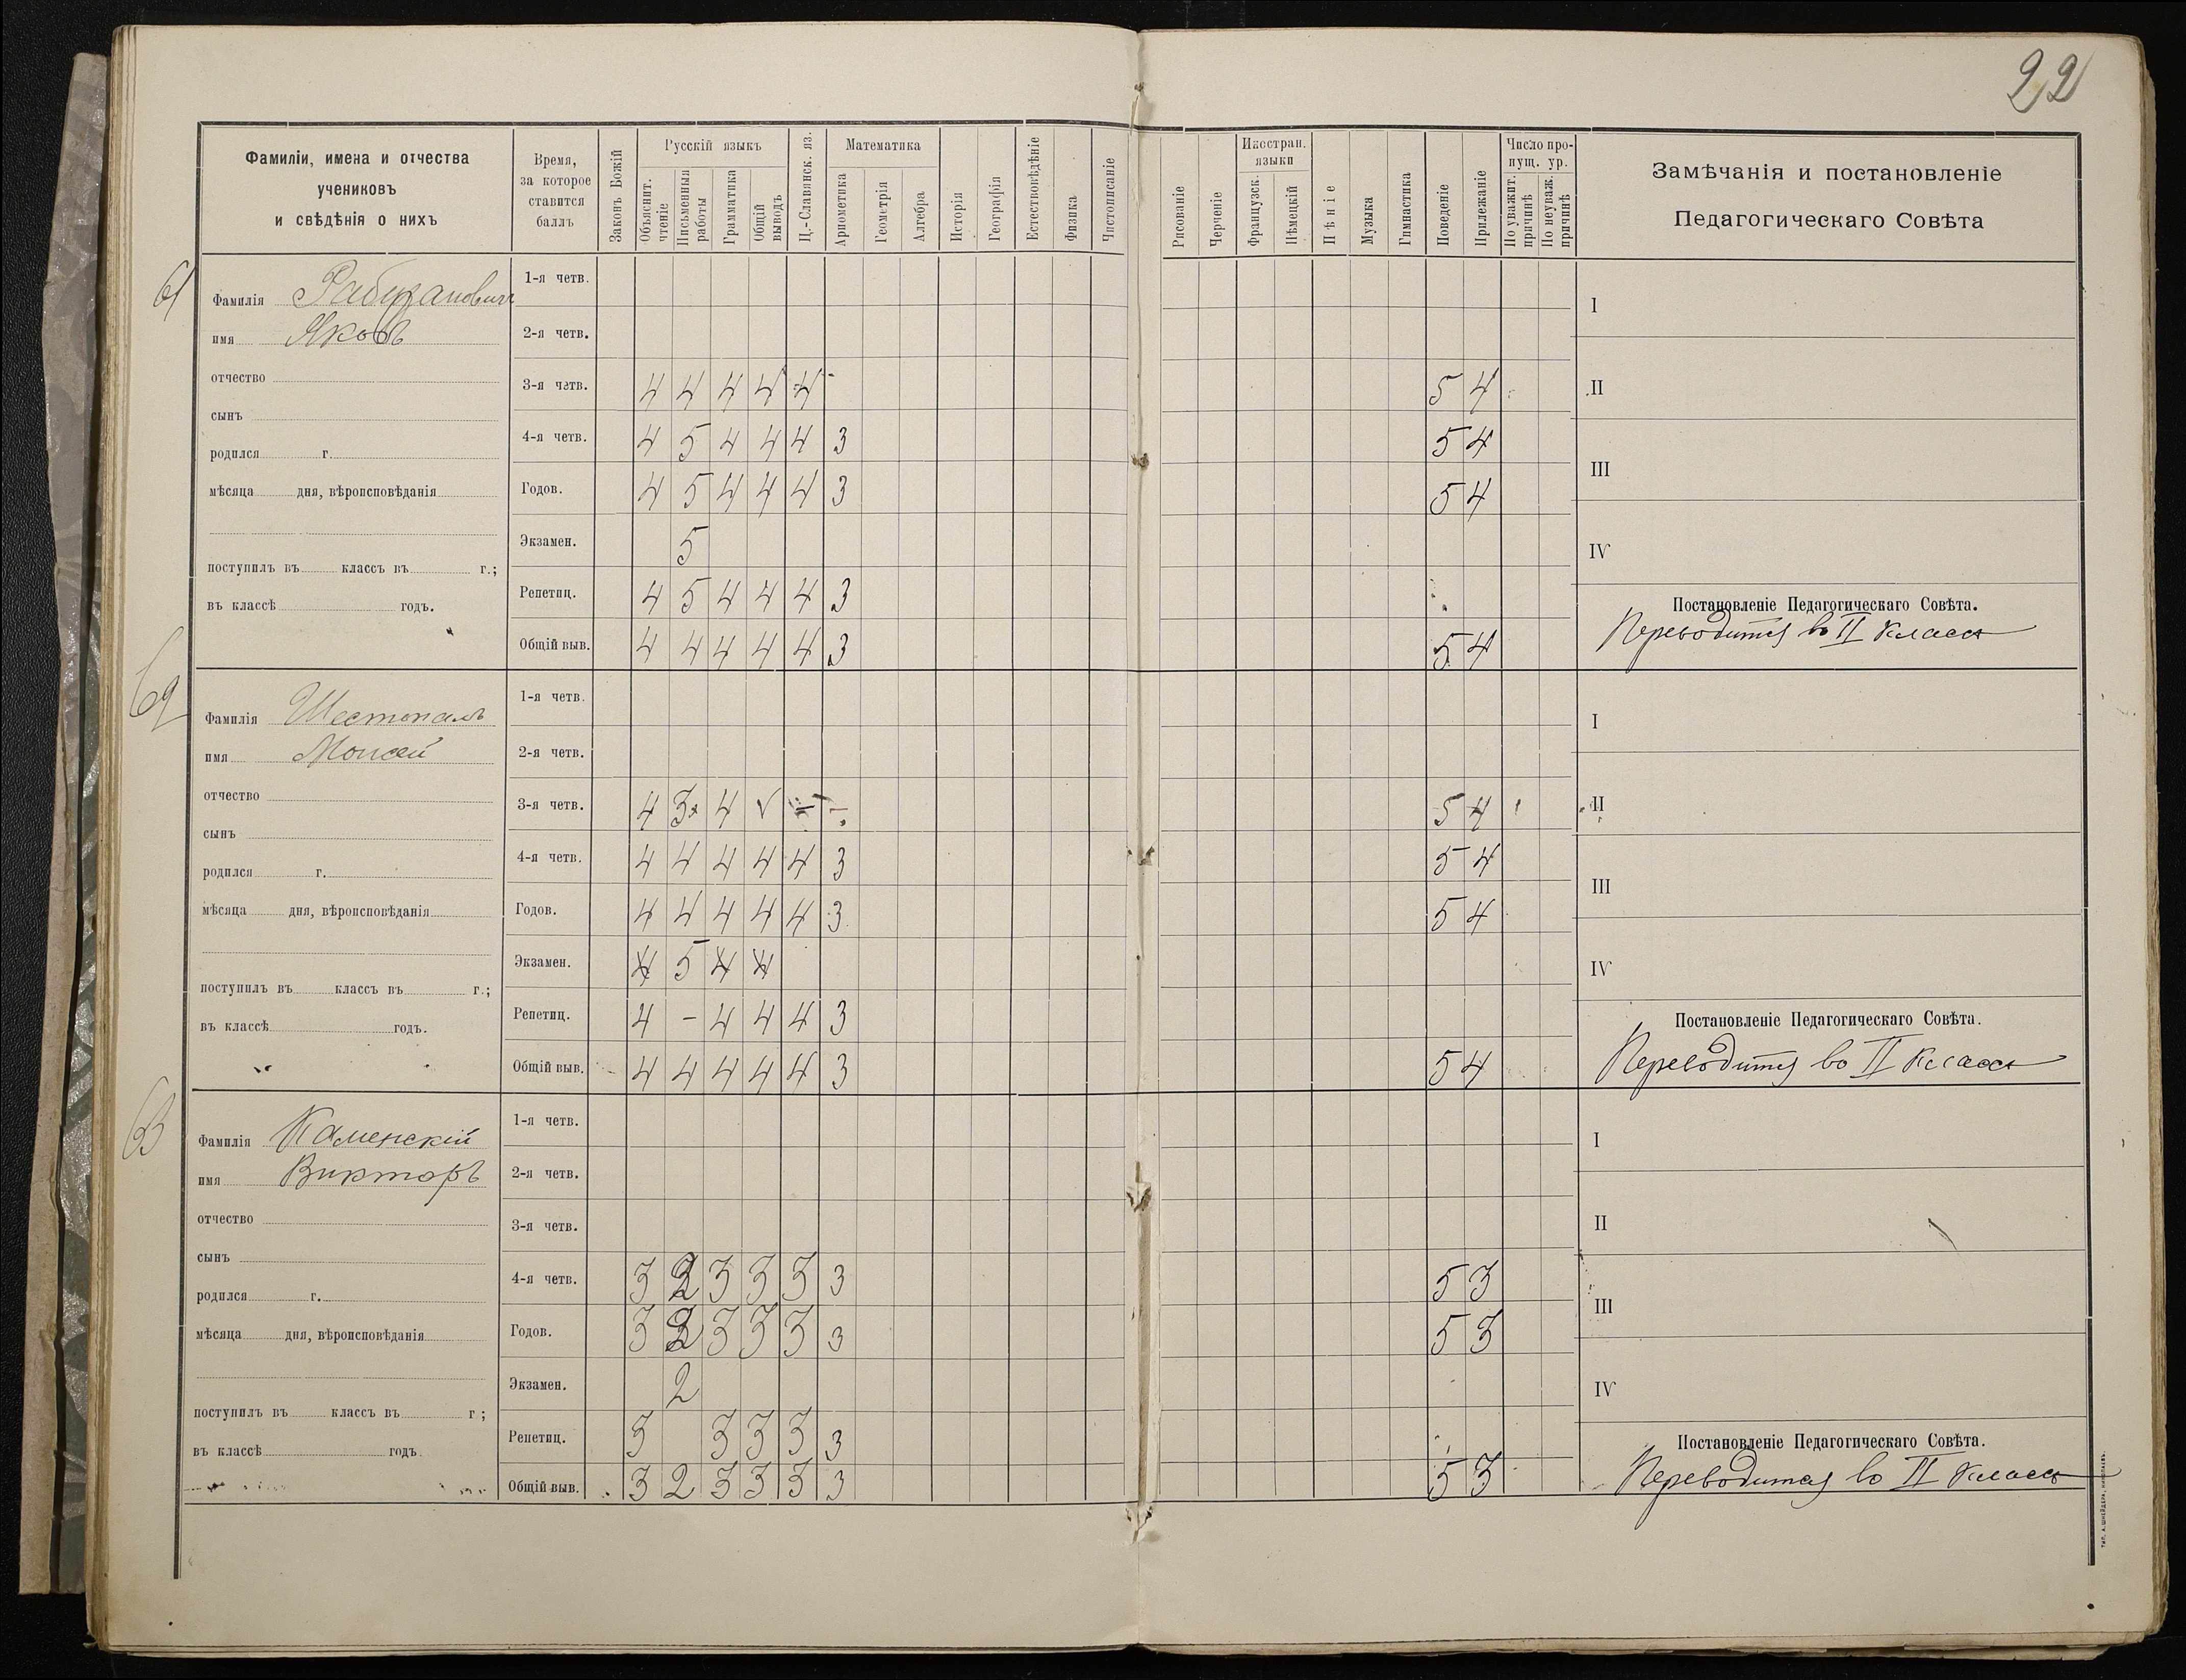 22
Фамиліи, имена и отчества
учениковъ
и свѣдѣнія о нихъ
Время,
за которое
ставится
баллъ
Законъ Божій
Русскій языкъ
Объяснит. чтеніе
Письменныя работы
Грамматика
Общій выводъ
Ц.-Славянск. яз.
Математика
Ариѳметика
Геометрія
Алгебра
Исторія
Географія
Естествовѣдѣніе
Физика
Чистописаніе
Рисованіе
Черченіе
Иностран. языки
Французск.
Нѣмецкій
Пѣніе
Музыка
Гимнастика
Поведеніе
Прилежаніе
Число пропущ. ур.
По уважит. причинѣ
По неуваж. причинѣ
Замѣчанія и постановленіе
Педагогическаго Совѣта
61
Фамилія
имя Яковъ
отчество
сынъ
родился г.
мѣсяца дня, вѣроисповѣданія
поступилъ въ классъ въ г.;
въ классѣ годъ.
1-я четв.
2-я четв.
3-я четв. 4 4 4 4 4 - 5 4
4-я четв. 4 5 4 4 4 3 5 4
Годов. 4 5 4 4 4 3 5 4
Экзамен. 5
Репетиц. 4 5 4 4 4 3
Общій выв. 4 4 4 4 4 3 5 4
I
II
III
IV
Постановленіе Педагогическаго Совѣта.
Переводится во II классъ
62
Фамилія Шестопалъ
имя Моисей
отчество
сынъ
родился г.
мѣсяца дня, вѣроисповѣданія
поступилъ въ классъ въ г.;
въ классѣ годъ.
1-я четв.
2-я четв.
3-я четв. 4 3 4 5 4
4-я четв. 4 4 4 4 4 3 5 4
Годов. 4 4 4 4 4 3 5 4
Экзамен. 4 5 4 4
Репетиц. 4 - 4 4 4 3
Общій выв. 4 4 4 4 4 3 5 4
I
II
III
IV
Постановленіе Педагогическаго Совѣта.
Переводится во II классъ
63
Фамилія Каменскій
имя Викторъ
отчество
сынъ
родился г.
мѣсяца дня, вѣроисповѣданія
поступилъ въ классъ въ г.;
въ классѣ годъ.
1-я четв.
2-я четв.
3-я четв.
4-я четв. 3 2 3 3 3 3 5 3
Годов. 3 2 3 3 3 3 5 3
Экзамен. 2
Репетиц. 3 3 3 3 3
Общій выв. 3 2 3 3 3 3 5 3
I
II
III
IV
Постановленіе Педагогическаго Совѣта.
Переводится во II классъ